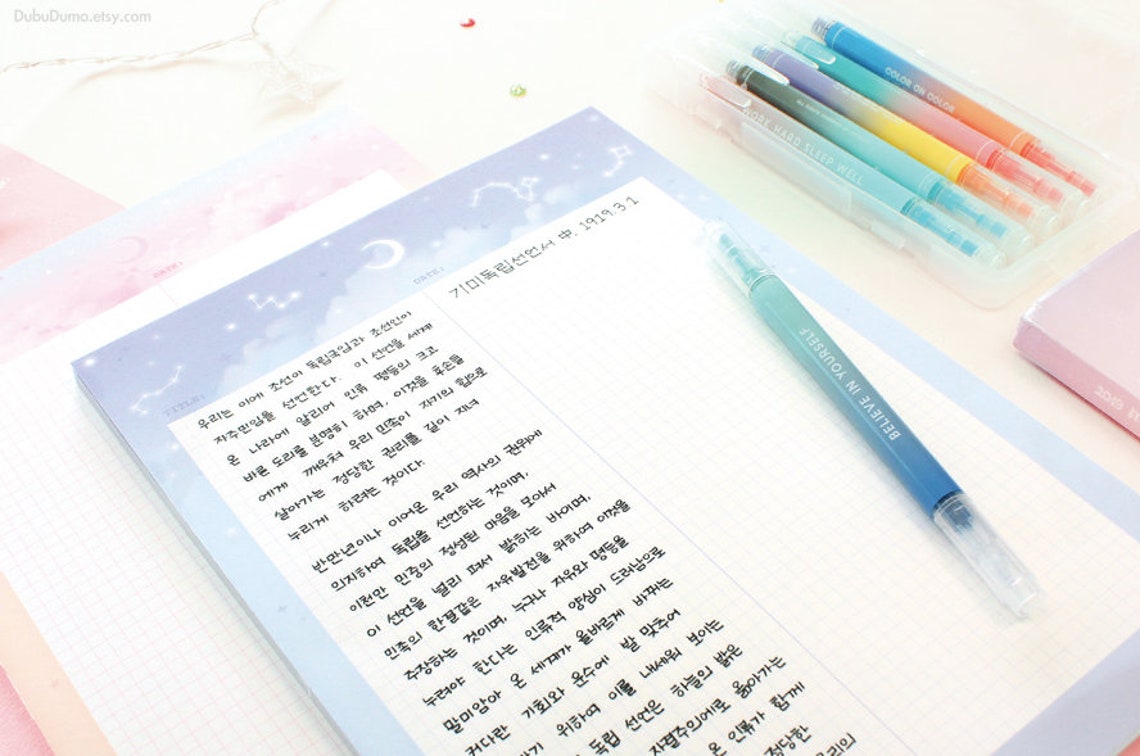 DubuDumo.etsy.com
COLOR ON COLOR
WORK HARD SLEEP WELL
DATE:
DATE:
TITLE:
기미독립선언서 中. 1919.3.1
우리는 이에 조선이 독립국임과 조선인이
자주민임을 선언한다. 이 선언을 세계
온 나라에 알리어 인류 평등의 크고
바른 도리를 분명히 하며, 이것을 후손들
에게 깨우쳐 우리 민족이 자기의 힘으로
살아가는 정당한 권리를 길이 지녀
누리게 하려는 것이다.
반만년이나 이어온 우리 역사의 권위에
의지하여 독립을 선언하는 것이며,
이천만 민중의 정성된 마음을 모아서
이 선언을 널리 펴서 밝히는 바이며,
민족의 한결같은 자유발전을 위하여 이것을
주장하는 것이며, 누구나 자유와 평등을
누려야 한다는 인류적 양심이 드러남으로
말미암아 온 세계가 올바르게 바꾸는
커다란 기회와 운수에 발 맞추어
위하여 이를 내세워 보이는
독립 선언은 하늘의 밝은
자결주의에로 옮아가는
온 인류가 함께
정당한
BELIEVE IN YOURSELF